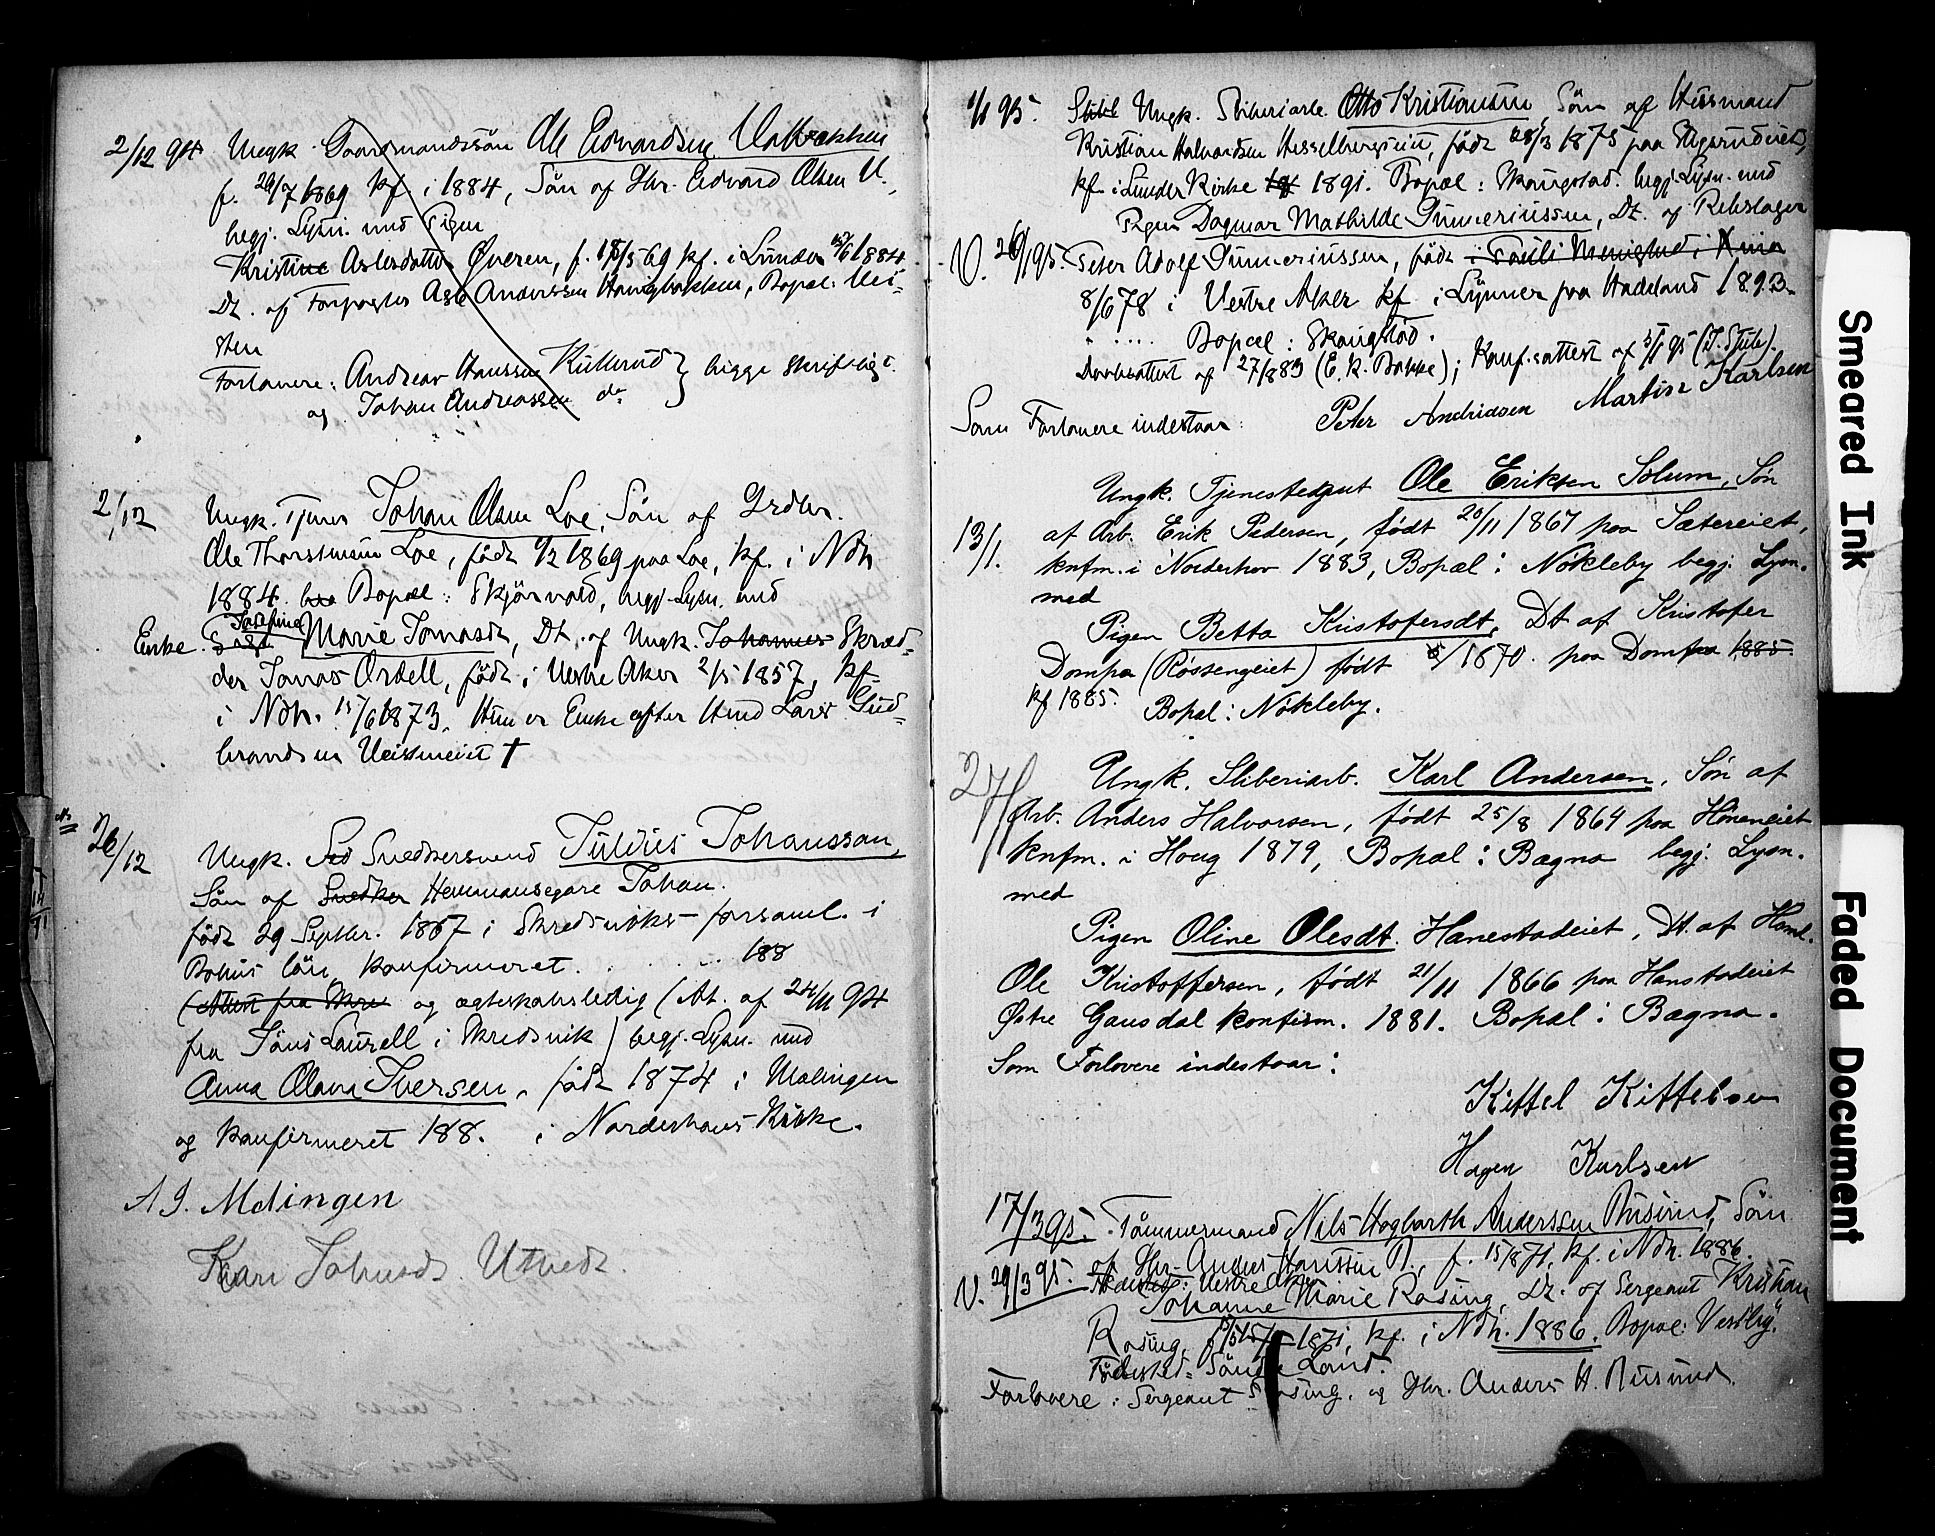 2/12 94 Ungk. Gaardmandssøn Ole Edvardsen Valbrakken
f. 29/7 1869 kf. i 1884, Søn af Gbr. Edvard Olsen V.,
begj. Lysn. med Pigen
Kristine Aslesdotter Øveren, f. 18/5 69 kf. i Lunder 15/6 1884
Dt. af Forpagter Asle Anderssen Haugbakken, Bopæl: Vei-
sten
Forlovere: Andreas Hanssen Killerud } begge skriftligt.
og Johan Andreassen do
2/12 Ungk. Tjener Johan Olsen Loe, Søn af Grdbr.
Ole Thorstensen Loe, født 1/2 1869 paa Loe, kf. i Ndh
1884. Bopæl: Skjørvold, begj. Lysn. med
Josefine
Enke Marie Tomasdt, Dt. af Ungk. Johannes Skræd-
der Tomas Ordell, født i Vestre Aker 2/5 1857, kf.
i Ndh. 15/6 1873. Hun er Enke efter Hmd Lars Gud-
brandsen Veistneiet †
26/12 Ungk. Snedkersvend Julius Johansson,
Søn af Snedker Hemmansegare Johan.
født 29 Septbr. 1867 i Skredsviks-forsaml. i
Bohus län, konfirmeret. . . . . 188
(Attest fra Skre og ægteskabsledig (At. af 24/11 94
fra Jöns Laurell i Skredsvik) begj. Lysn. med
Anna Olava Iversen, født 1874 i Malingen
og konfirmeret 188. i Norderhovs Kirke.
A I. Melingen
Kari Johnsdt. Utvedt.
1/1 95. Ungk. Sliberiarb. Otto Kristiansen, Søn af Husmand
Kristian Halvorsen Hesselbergseiet, født 28/3 1875 paa Elgerudeiet,
kf. i Lunder Kirke 1891. Bopæl: Skaugstad. begj. Lysn. med
Pigen Dagmar Mathilde Gunneriussen, Dt. af Rebslager
V. 26/1 95. Peter Adolf Gunneriussen, født
8/6 78 i Vestre Aker kf. i Lunner paa Hadeland 1893.
" .... Bopæl: Skaugstad.
Daabsattest af 27/8 83 (E. K. Bakke); Konf.attest af 5/1 95 (J. Stub).
Som Forlovere indestaar: Peter Andriasen Martin Karlsen
13/1. Ungk. Tjenestegut Ole Eriksen Solum, Søn
af Arb. Erik Pedersen, født 20/11 1867 paa Sætereiet,
knfm. i Norderhov 1883, Bopæl: Nökleby begj. Lysn.
med
Pigen Betta Kristofersdt., Dt af Kristofer
Dompa (Røssengeiet) født 5/ 1870. paa Dompa 1885.
kf 1885. Bopæl: Nökleby.
27/1 Ungk. Sliberiarb. Karl Andersen, Søn af
Arb. Anders Halvorsen, født 25/8 1864 paa Høneneiet
knfm. i Houg 1879, Bopæl: Bægna begj. Lysn.
med
Pigen Oline Olesdt. Hanestadeiet, Dt. af Husml.
Ole Kristoffersen, født 21/11 1866 paa Hanstadeiet
Østre Gausdal konfirm. 1881. Bopæl: Bægna.
Som Forlovere indestaar:
Kittel Kittelsen
Hagen Karlsen
17/3 95. Tømmermand Nils Hogbarth Anderssen Busund, Søn
af Gbr. Anders Hanssen B., f. 15/8 71, kf. i Ndh. 1886.
V. 29/3 95. Fødested: Vestre Aker
Johanne Marie Rosing, Dt. af Sergeant Kristian
Rosing, 1871, kf. i Ndh. 1886, Bopæl: Vestby.
Fødested: Søndre Land.
Forlovere: Sergeant Rosing. og Gbr. Anders H. Busund.
Smeared Ink
Faded Document